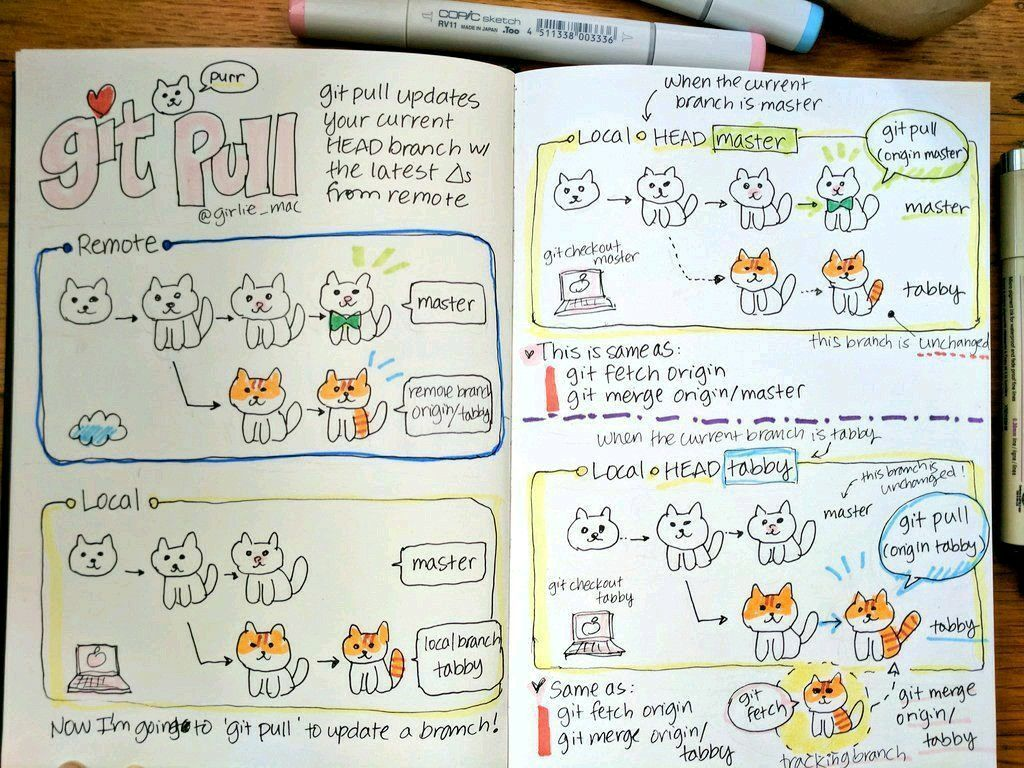 COPIC sketch
RV11 MADE IN JAPAN .Too
4 511338 003336
purr
git pull
@girlie_mac
git pull updates
your current
HEAD branch w/
the latest Δs
from remote
Remote
master
remove branch
origin/tabby
Local
master
local branch
tabby
Now I'm going to 'git pull' to update a branch!
When the current
branch is master
Local HEAD master
git pull
(origin master)
master
git checkout
master
tabby
this branch is unchanged
This is same as:
git fetch origin
git merge origin/master
when the current branch is tabby
Local HEAD tabby
this branch is
unchanged!
master
git pull
(origin tabby)
git checkout
tabby
tabby
Same as:
git fetch origin
git merge origin/
tabby
git
fetch
tracking branch
git merge
origin/
tabby